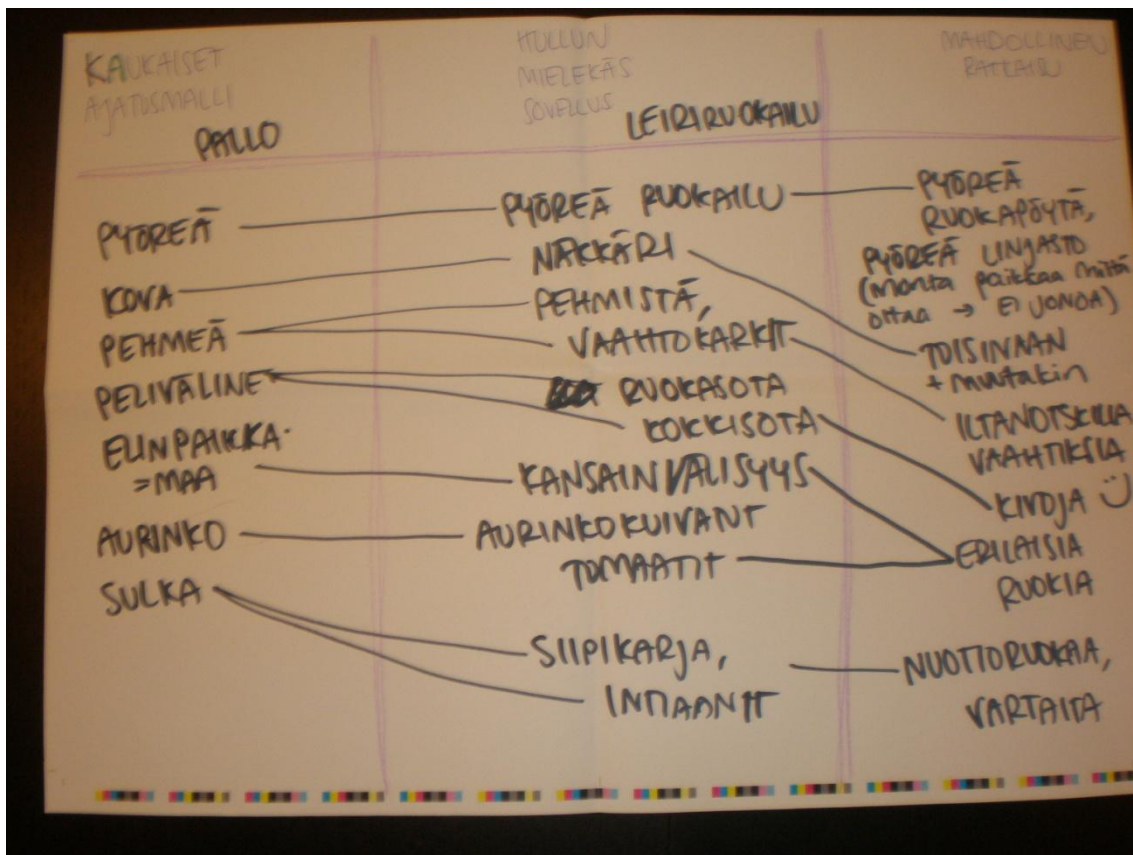 KAUKAISET
AJATUSMALLI
PALLO
PYÖREÄ
KOVA
PEHMEÄ
PELIVÄLINE
ELINPAIKKA
=MAA
AURINKO
SULKA
HULLUN
MIELEKÄS
SOVELLUS
LEIRIRUOKAILU
PYÖREÄ RUOKAILU
NÄKKÄRI
PEHMISTÄ,
VAAHTOKARKIT
RUOKASOTA
KOKKISOTA
KANSAINVÄLISYYS
AURINKOKUIVANT
TOMAATIT
SIIPIKARJA,
INTIAANIT
MAHDOLLINEN
RATKAISU
PYÖREÄ
RUOKAPÖYTÄ,
PYÖREÄ LINJASTO
(monta paikkaa mistä
ottaa → EI JONOA)
TOISINAAN
+ muutakin
ILTANOTSKILLA
VAAHTIKSIA
KIVOJA
ERILAISIA
RUOKIA
NUOTIORUOKAA,
VARTAITA